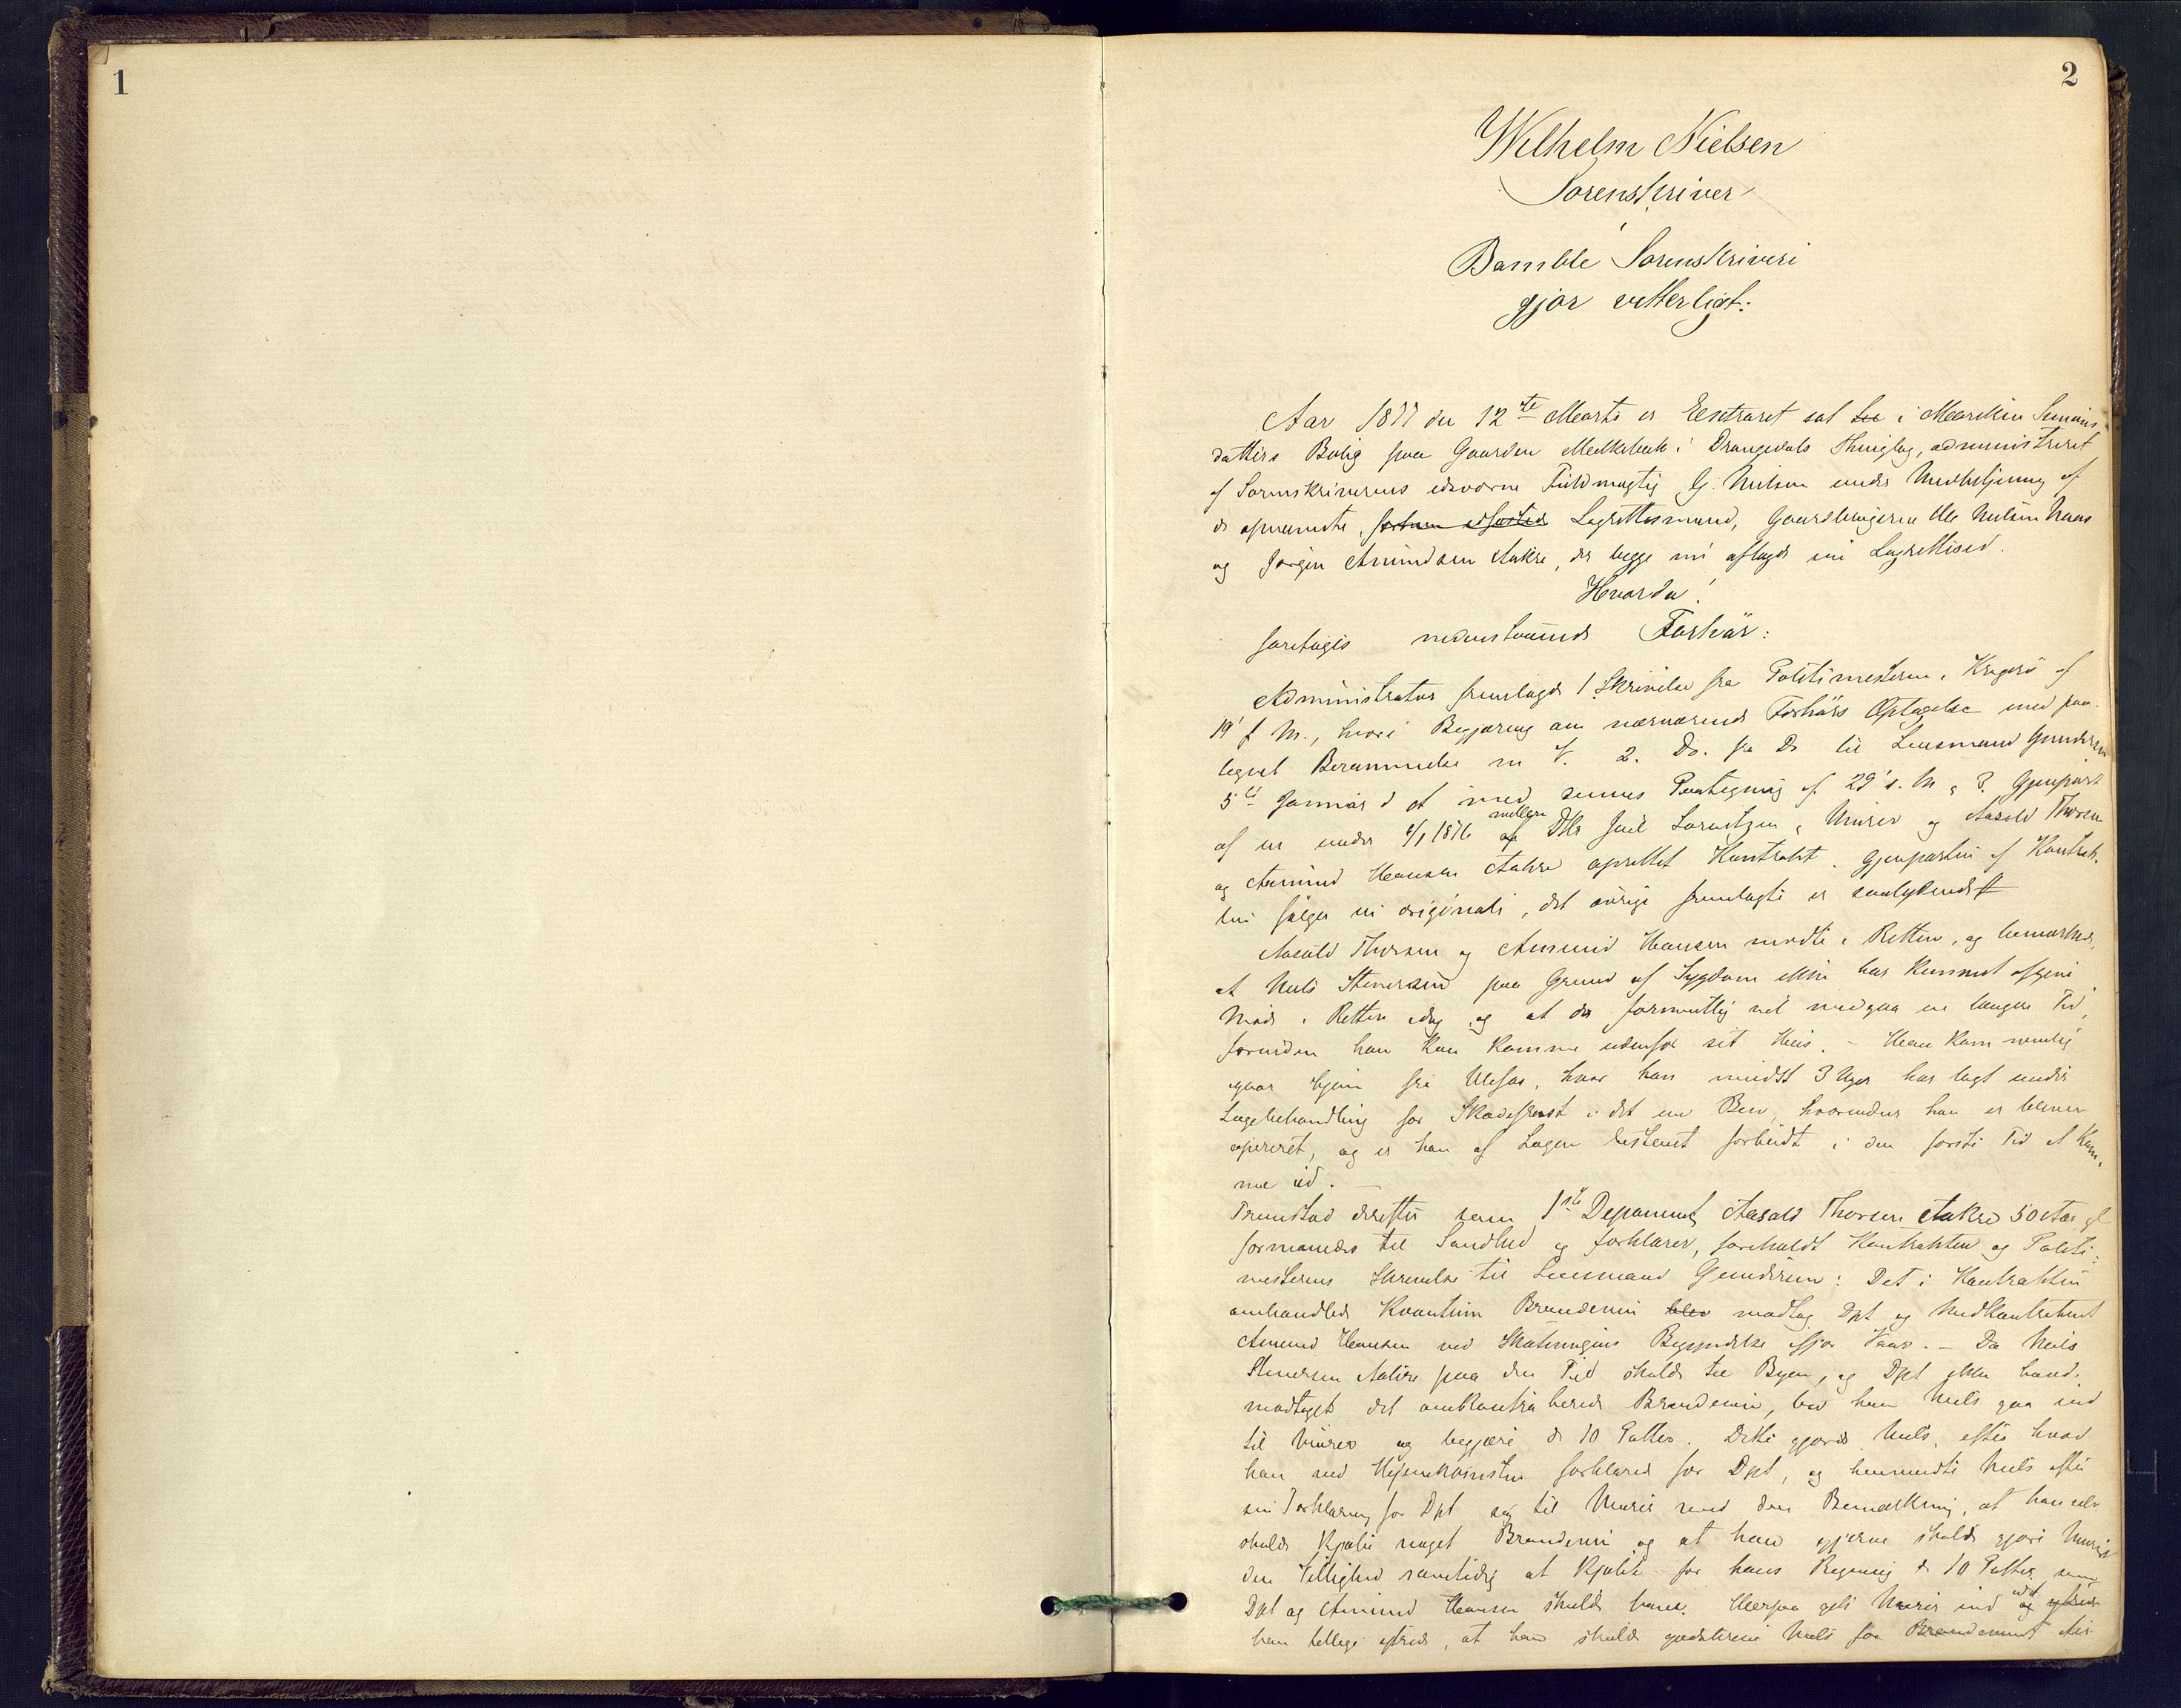 1
2
Wilhelm Nielsen
Sorenskriver
i
Bamble Sorenskriveri
gjør vitterligt:
Aar 1877 den 12te Marts er Extraret sat i Simons
datters Bolig paa Gaarden i Drangedals Thinglag, administreret
af Sorenskriverens edsvorne Fuldmægtig G. Nielsen under Medbetjening af
de opnævnte, Lagrettesmænd, Gaardbrugerne Ole Nielsen Naas
og Jørgen Amundsen Aakre, der begge nu aflagde sin Lagretteed.
Hvorda!
foretoges nedenstaaende Forhør:
Administrator fremlagde 1 Skrivelse fra Politimesteren i Kragerø af
19' f M., hvori Begjæring om nærværende Forhørs Optagelse med paa-
tegnet Berammelse m V. 2. Do. fra Do til Lensmand Gundersen
5te Januar d A med dennes Paategning af 29' s. M, 3. Gjenpart
af en under 1876 mellem DHr Juel Lorentzen, og Aasold Thorsen
og Amund Hansen Aakre oprettet Kontrakt. Gjenparten af Kontrak-
ten følger in originali, det øvrige fremlagte er saalydende
Aasold Thorsen og Amund Hansen mødte i Retten, og bemærkedes,
at Nils Stenersen paa Grund af Sygdom ikke har kunnet afgive
Møde i Retten idag og at der formentlig vil medgaa en længere Tid,
forinden han kan komme udenfor sit Hus. - Han kom nemlig
igaar hjem fra Ulefos, hvor han mindst 3 Uger har lagt under
Lægebehandling for i det ene Ben, hvorunder han er bleven
opereret, og er han af Lægen bestemt forbudt i den første Tid at kom-
me ud. -
Fremstod derefter som 1ste Deponent, Aasold Thorsen Aakre 50 Aar gl
formanedes til Sandhed og forklarer, foreholdt Kontrakten og Politi-
mesterens Skrivelse til Lensmand Gundersen: Det i Kontrakten
omhandlede Kvantum Brændevin blev modtog Dpt og Medkontrahent
Amund Hansen ved Begyndelse ifjor Vaar. - Da Nils
Stenersen Aakre paa den Tid skulde til Byen, og Dpt ikke havde
modtaget det omkontraherede Brændevin, bad han Nils gaa ind
til og begjære de 10 Potter. Dette gjorde Nils, efter hvad
han ved Hjemkomsten forklarede for Dpt, og henvendte Nils efter
sin Forklaring for Dpt sig til med den Bemærkning, at han selv
skulde kjøbe noget Brændevin og at han gjerne skulde gjøre
den Tillighed samtidig at kjøbe for hans Regning de 10 Potter som
Dpt og Amund Hansen skulde have. Herpaa gik ind
han tillige , at han skulde Nils faa Brændevinet